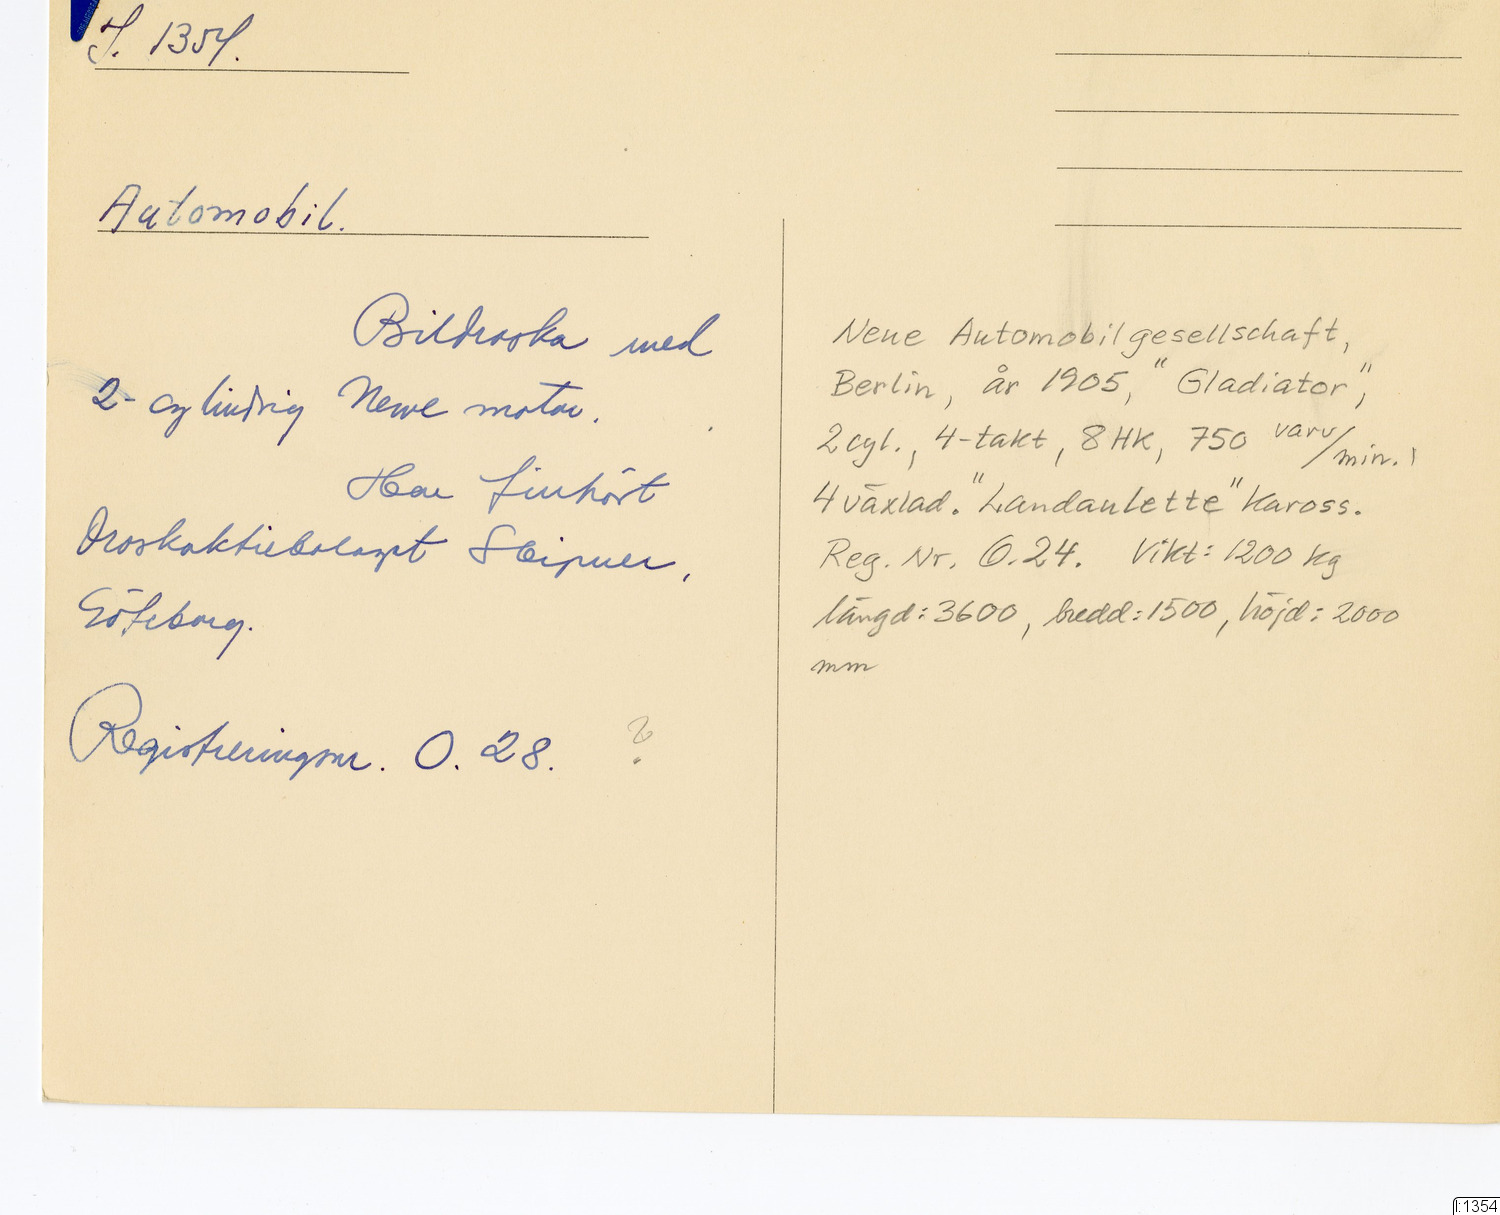 I. 1354.
Automobil.
Bildroska med
2-cylindrig Newe motor.
Har tillhört
Droskaktiebolaget Sleipner,
Göteborg.
Registreringsnr. O. 28. ?
Neue Automobilgesellschaft,
Berlin, år 1905, "Gladiator",
2 cyl., 4-takt, 8 HK, 750 varv/min.,
4 växlad. "Landaulette" kaross.
Reg. Nr. O.24. Vikt: 1200 kg
längd: 3600, bredd: 1500, höjd: 2000
mm
I:1354